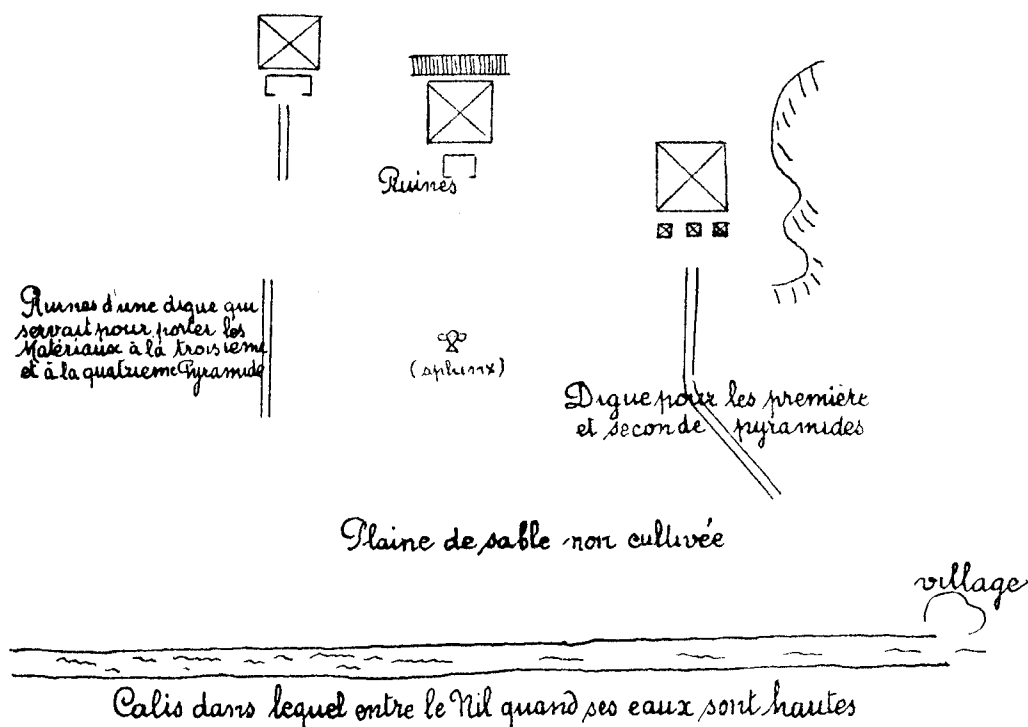 Ruines
Ruines d'une digue qui
servait pour porter les
Matériaux à la troisieme
et à la quatrieme Pyramide
(sphinx)
Digue pour les première
et seconde pyramides
Plaine de sable non cultivée
village
Calis dans lequel entre le Nil quand ses eaux sont hautes